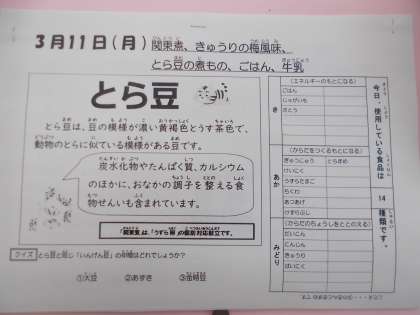 3月11日(月) 関東煮、きゅうりの梅風味、
とら豆の煮もの、ごはん、牛乳
とら豆
とら豆は、豆の模様が濃い黄褐色とうす茶色で、
動物のとらに似ている模様がある豆です。
炭水化物やたんぱく質、カルシウム
のほかに、おなかの調子を整える食
物せんいも含まれています。
「関東煮」は、「うずら卵」の個別対応献立です。
クイズ とら豆と同じ「いんげん豆」の仲間はどれでしょうか?
①大豆 ②あずき ③金時豆
今日、使用している食品は 14 種類です。
き
(エネルギーのもとになる)
ごはん
じゃがいも
さとう
あか
(からだをつくるもとになる)
ぎゅうにゅう とらまめ
けいにく
うずらたまご
ちくわ
あつあげ
けずりぶし
みどり
(からだのちょうしをととのえる)
だいこん
にんじん
きゅうり
ばいにく